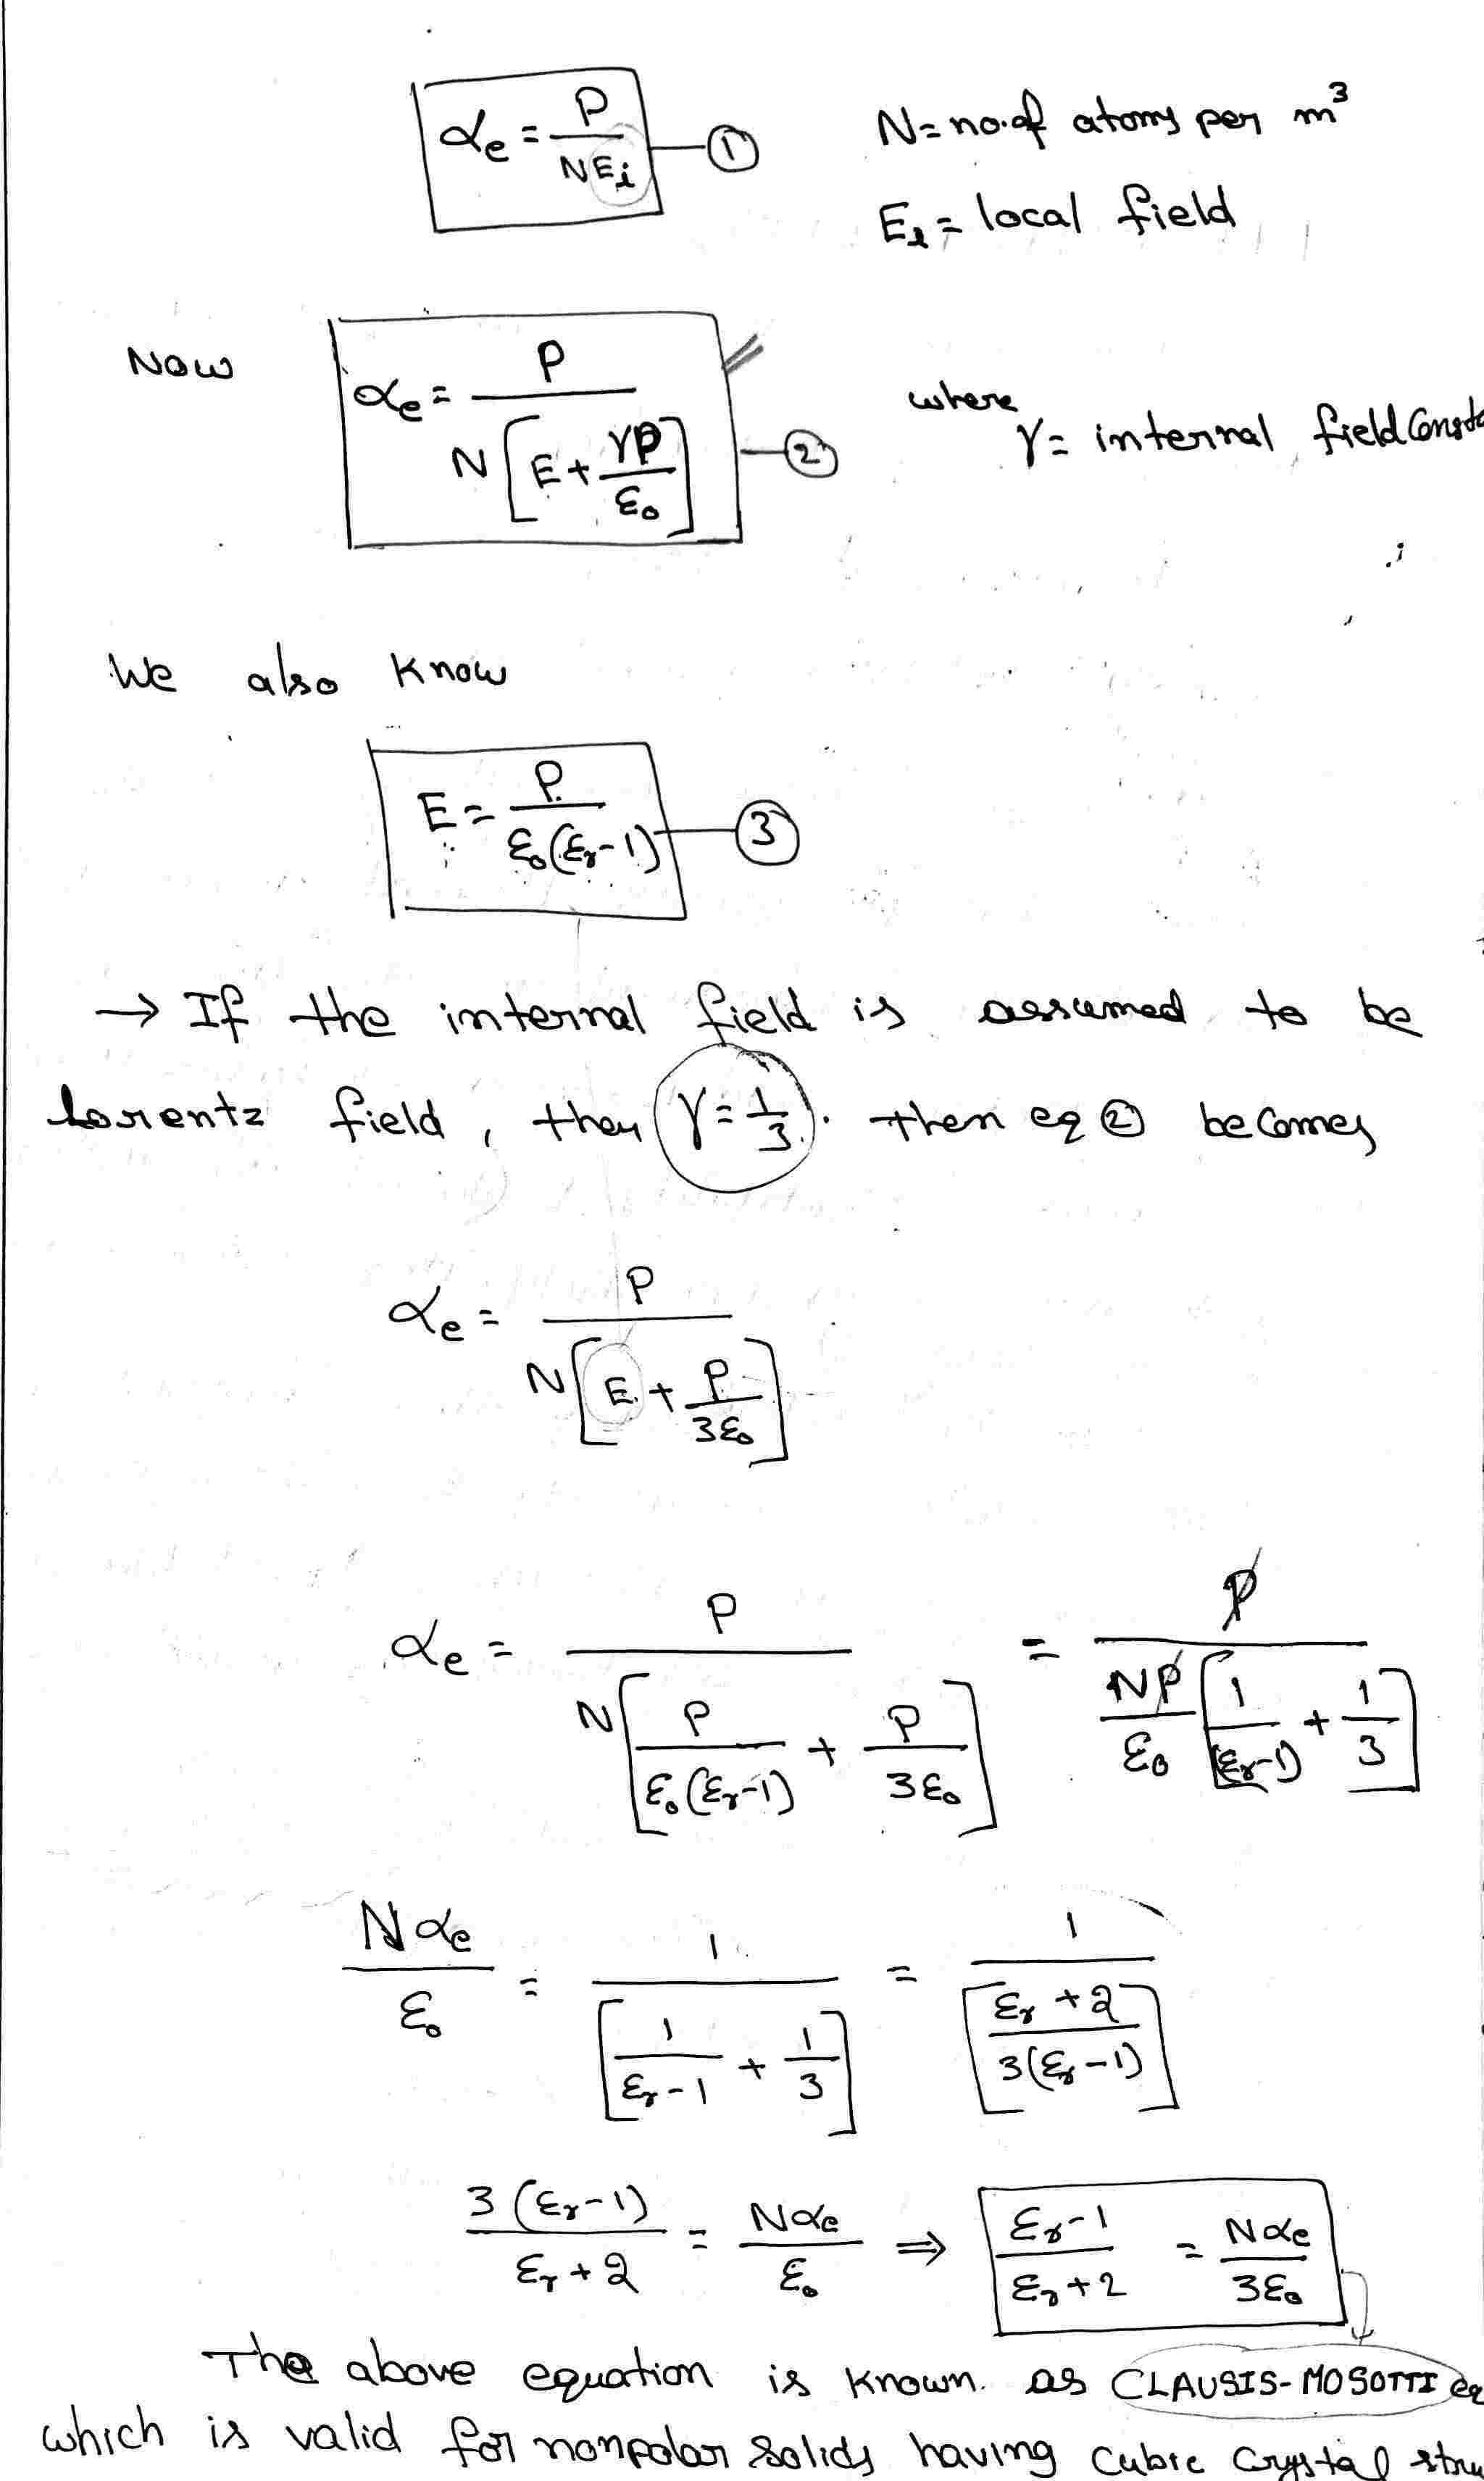 αe = P / NEi —① N = no. of atoms per m³
El = local field
Now αe = P / N[E + γP/ε₀] —② where γ = internal field
We also know
E = P / ε₀(εr-1) —③
→ If the internal field is assumed to be
Lorentz field, then γ = 1/3. then eq ② becomes
αe = P / N[E + P/3ε₀]
αe = P / N[P/ε₀(εr-1) + P/3ε₀] = P / NP/ε₀ [1/(εr-1) + 1/3]
Nαe/ε₀ = 1 / [1/εr-1 + 1/3] = 1 / [εr+2 / 3(εr-1)]
3(εr-1) / εr+2 = Nαe/ε₀ ⇒ εr-1 / εr+2 = Nαe / 3ε₀
The above equation is known as CLAUSIS-MOSOTTI
which is valid for nonpolar solids having cubic crystal